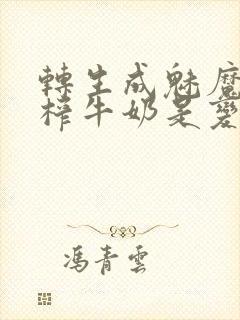 轉生成魅魔
榨牛奶是變
馮青雲